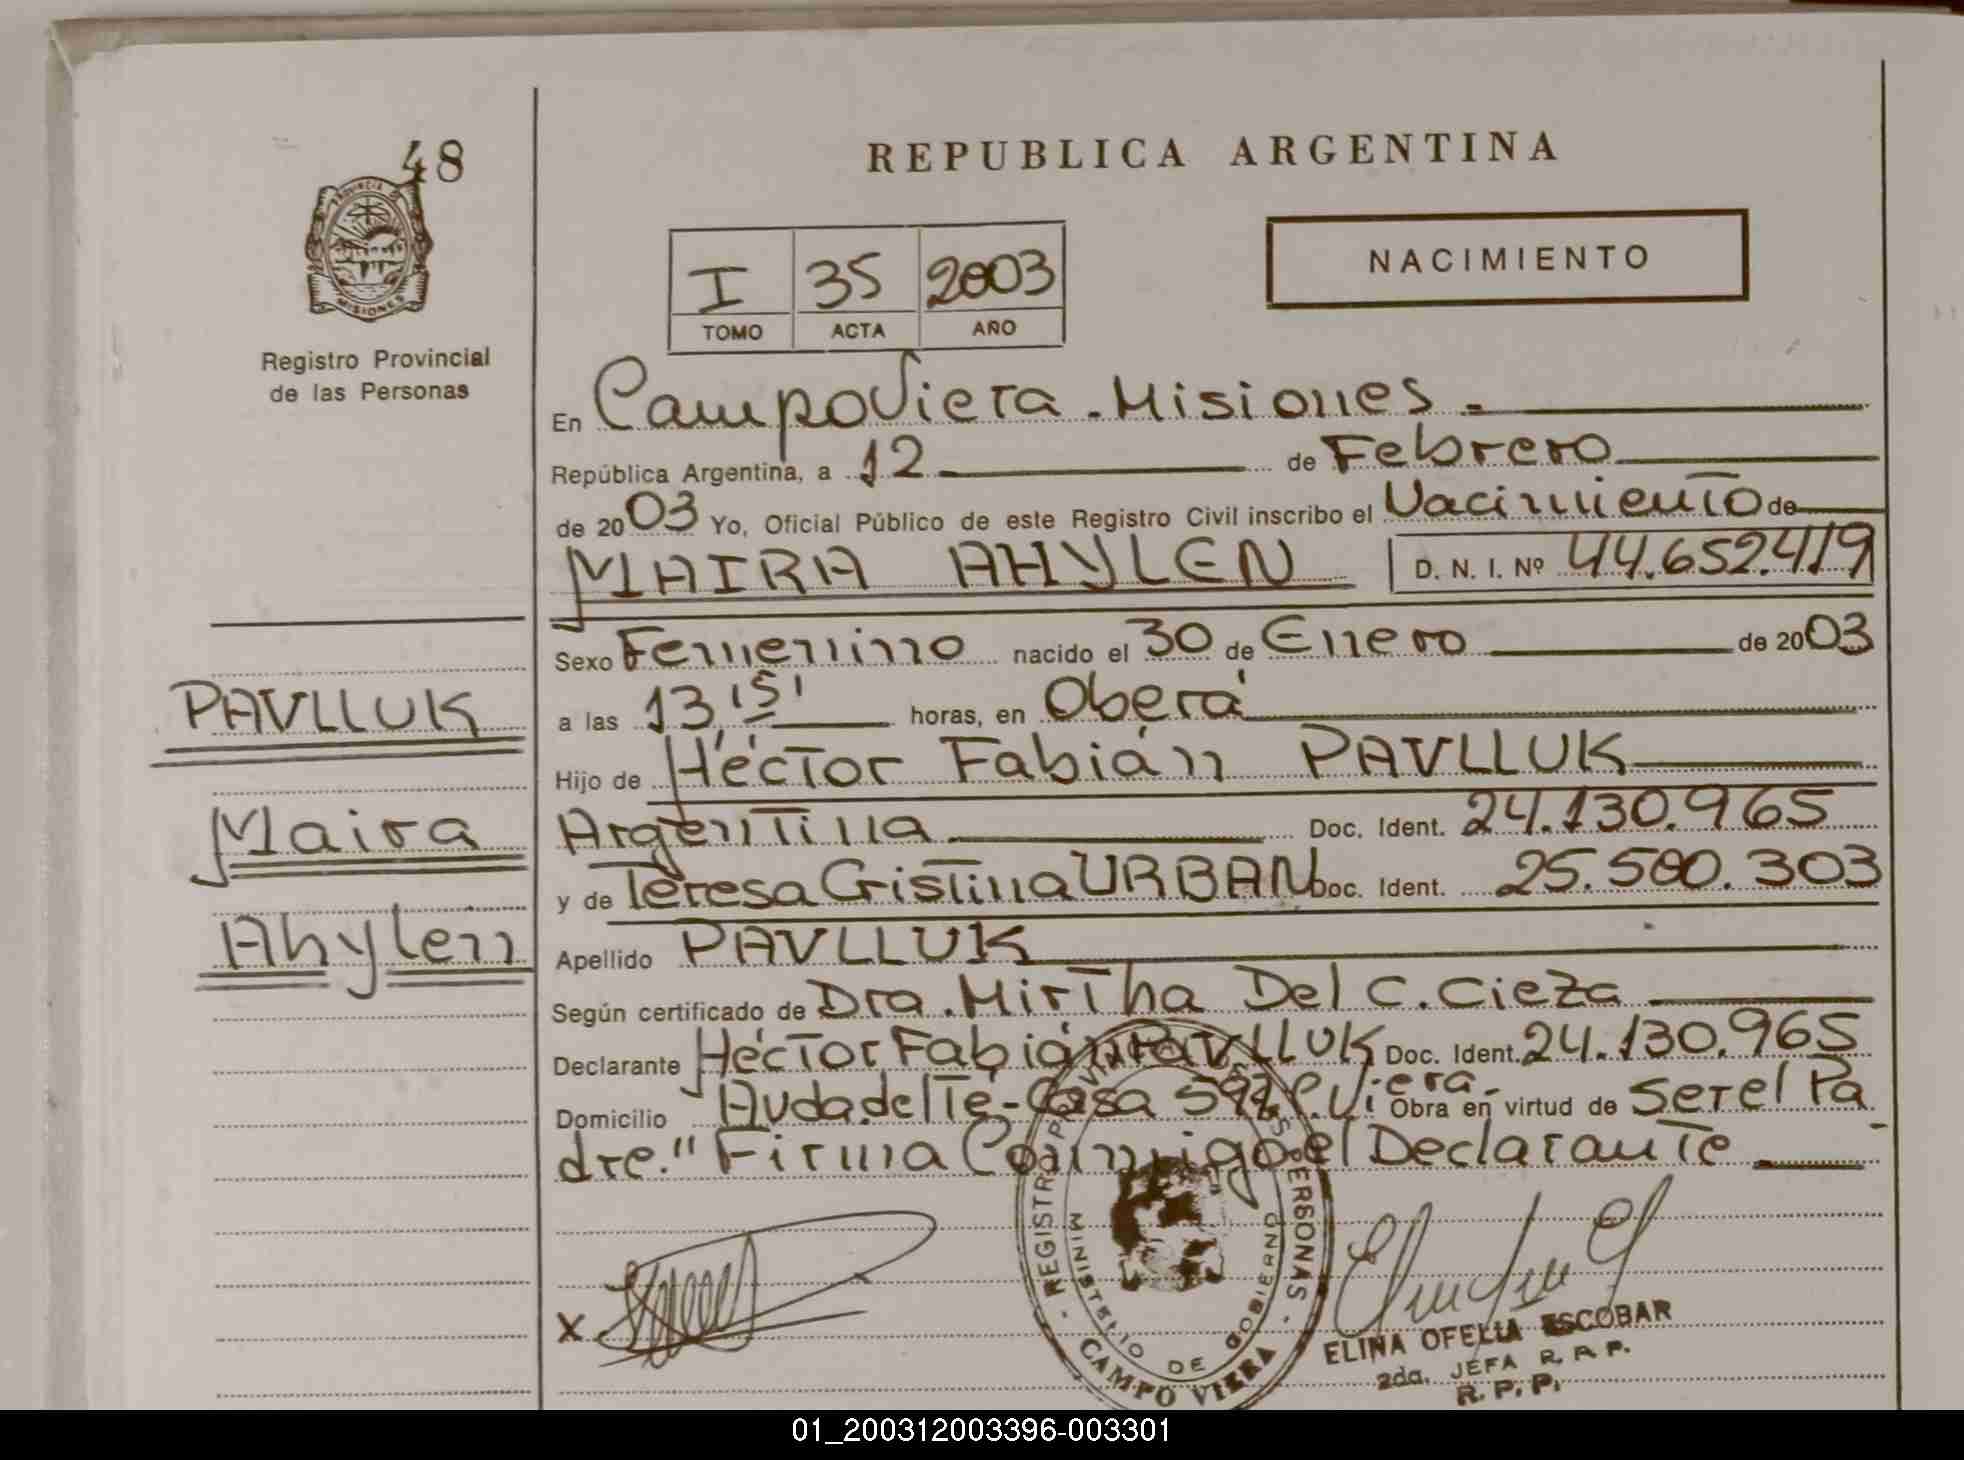 48
PROVINCIA DE
MISIONES
Registro Provincial
de las Personas
REPUBLICA ARGENTINA
I 35 2003
TOMO ACTA AÑO
NACIMIENTO
En Campo Viera - Misiones -
República Argentina, a 12 de Febrero
de 2003 Yo, Oficial Público de este Registro Civil inscribo el Nacimiento de
MAIRA AHYLEN D. N. I. Nº 44.652.419
Sexo Femenino nacido el 30 de Enero de 2003
a las 13,15' horas, en Oberá
Hijo de Héctor Fabián PAVLLUK
Argentina Doc. Ident. 24.130.965
y de Teresa Cristina URBAN Doc. Ident. 25.500.303
Apellido PAVLLUK
Según certificado de Dra. Mirtha Del C. Cieza
Declarante Héctor Fabián PavLLUK Doc. Ident. 24.130.965
Domicilio Avda del Té - Casa C. Viera - Obra en virtud de Ser el Pa
dre." Firma Conmigo el Declarante
PAVLLUK
Maira
Ahylen
X
REGISTRO PERSONAS
MINISTERIO DE GOBIERNO
CAMPO VIERA
ELINA OFELIA ESCOBAR
2da. JEFA R. A. P.
R. P. P.
01_200312003396-003301